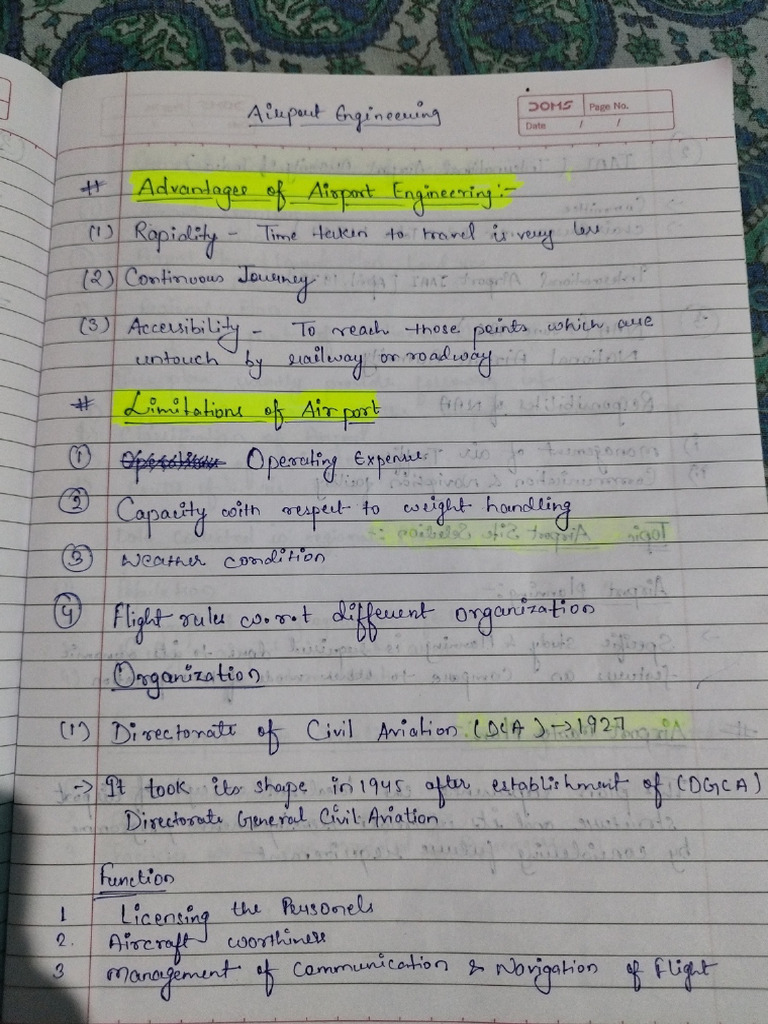 Airport Engineering
DOMS Page No.
Date / /
# Advantages of Airport Engineering:-
(1) Rapidity - Time taken to travel is very less
(2) Continuous Journey
(3) Accessibility - To reach those points which are
untouch by railway or roadway
# Limitations of Airport
① Operating Expense
② Capacity with respect to weight handling
③ Weather condition
④ Flight rules w.r.t different organization
Organization
(1) Directorate of Civil Aviation (DCA) → 1927
→ It took its shape in 1945 after establishment of (DGCA)
Directorate General Civil Aviation
Function
1 Licensing the Personels
2. Aircraft worthiness
3 Management of Communication & Navigation of Flight